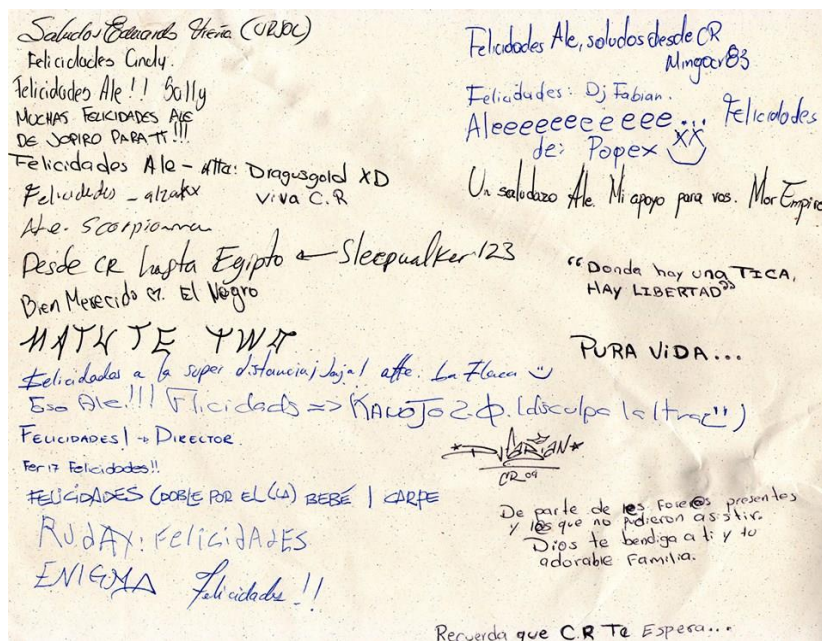 Saludos Eduardo (URJOC)
Felicidades Cindy.
Felicidades Ale!! Sally
MUCHAS FELICIDADES ALE
DE JOPIRO PARA TI!!!
Felicidades Ale - Atta: Dragusgold XD
VIVA C.R
Felicidades - alzakx
Ale. Scorpionna
Desde CR hasta Egipto ← Sleepwalker123
Bien Merecido El Negro
Felicidades a la super distancia, jaja! atte. La Flaca
Eso Ale!!! Flicidads => (disculpa la ltra)
FELICIDADES! → DIRECTOR.
Fer17 Felicidades!!
FELICIDADES (DOBLE POR EL (LA) BEBÉ | CARPE
RUdAY: FELICIdAdES
ENIGMA Felicidades!!
Felicidades Ale, saludos desde CR
Mingocr83
Felicidades: Dj Fabian.
Aleeeeeeeeeeee... Felicidades
de: Popex XX
Un saludazo Ale. Mi apoyo para vos. MorEmpire
"Donde hay una TICA,
HAY LIBERTAD"
PURA ViDA...
CR 09
De parte de l@s Forer@s presentes
y l@s que no pudieron asistir.
Dios te bendiga a ti y tu
adorable Familia.
Recuerda que C.R Te Espera...